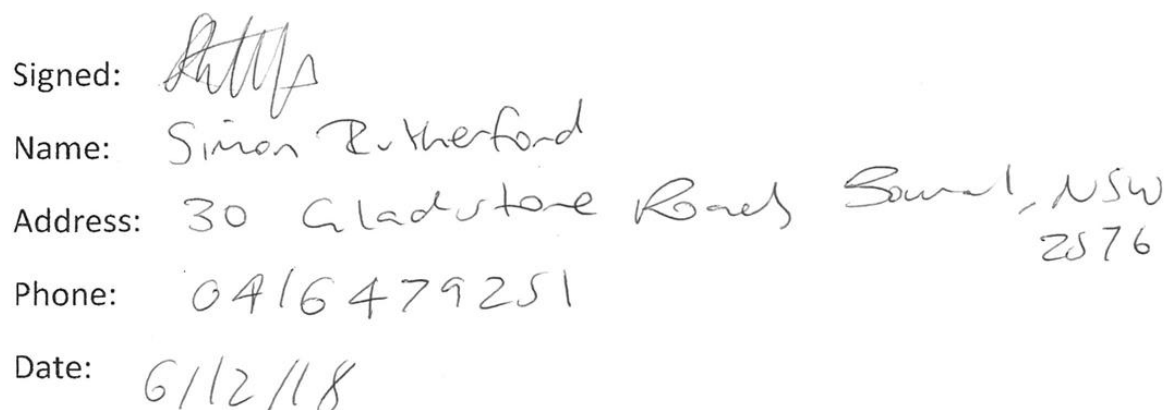 Signed:
Name: Simon Rutherford
Address: 30 Gladstone Road Bowral, NSW
2576
Phone: 0416479251
Date: 6/12/18